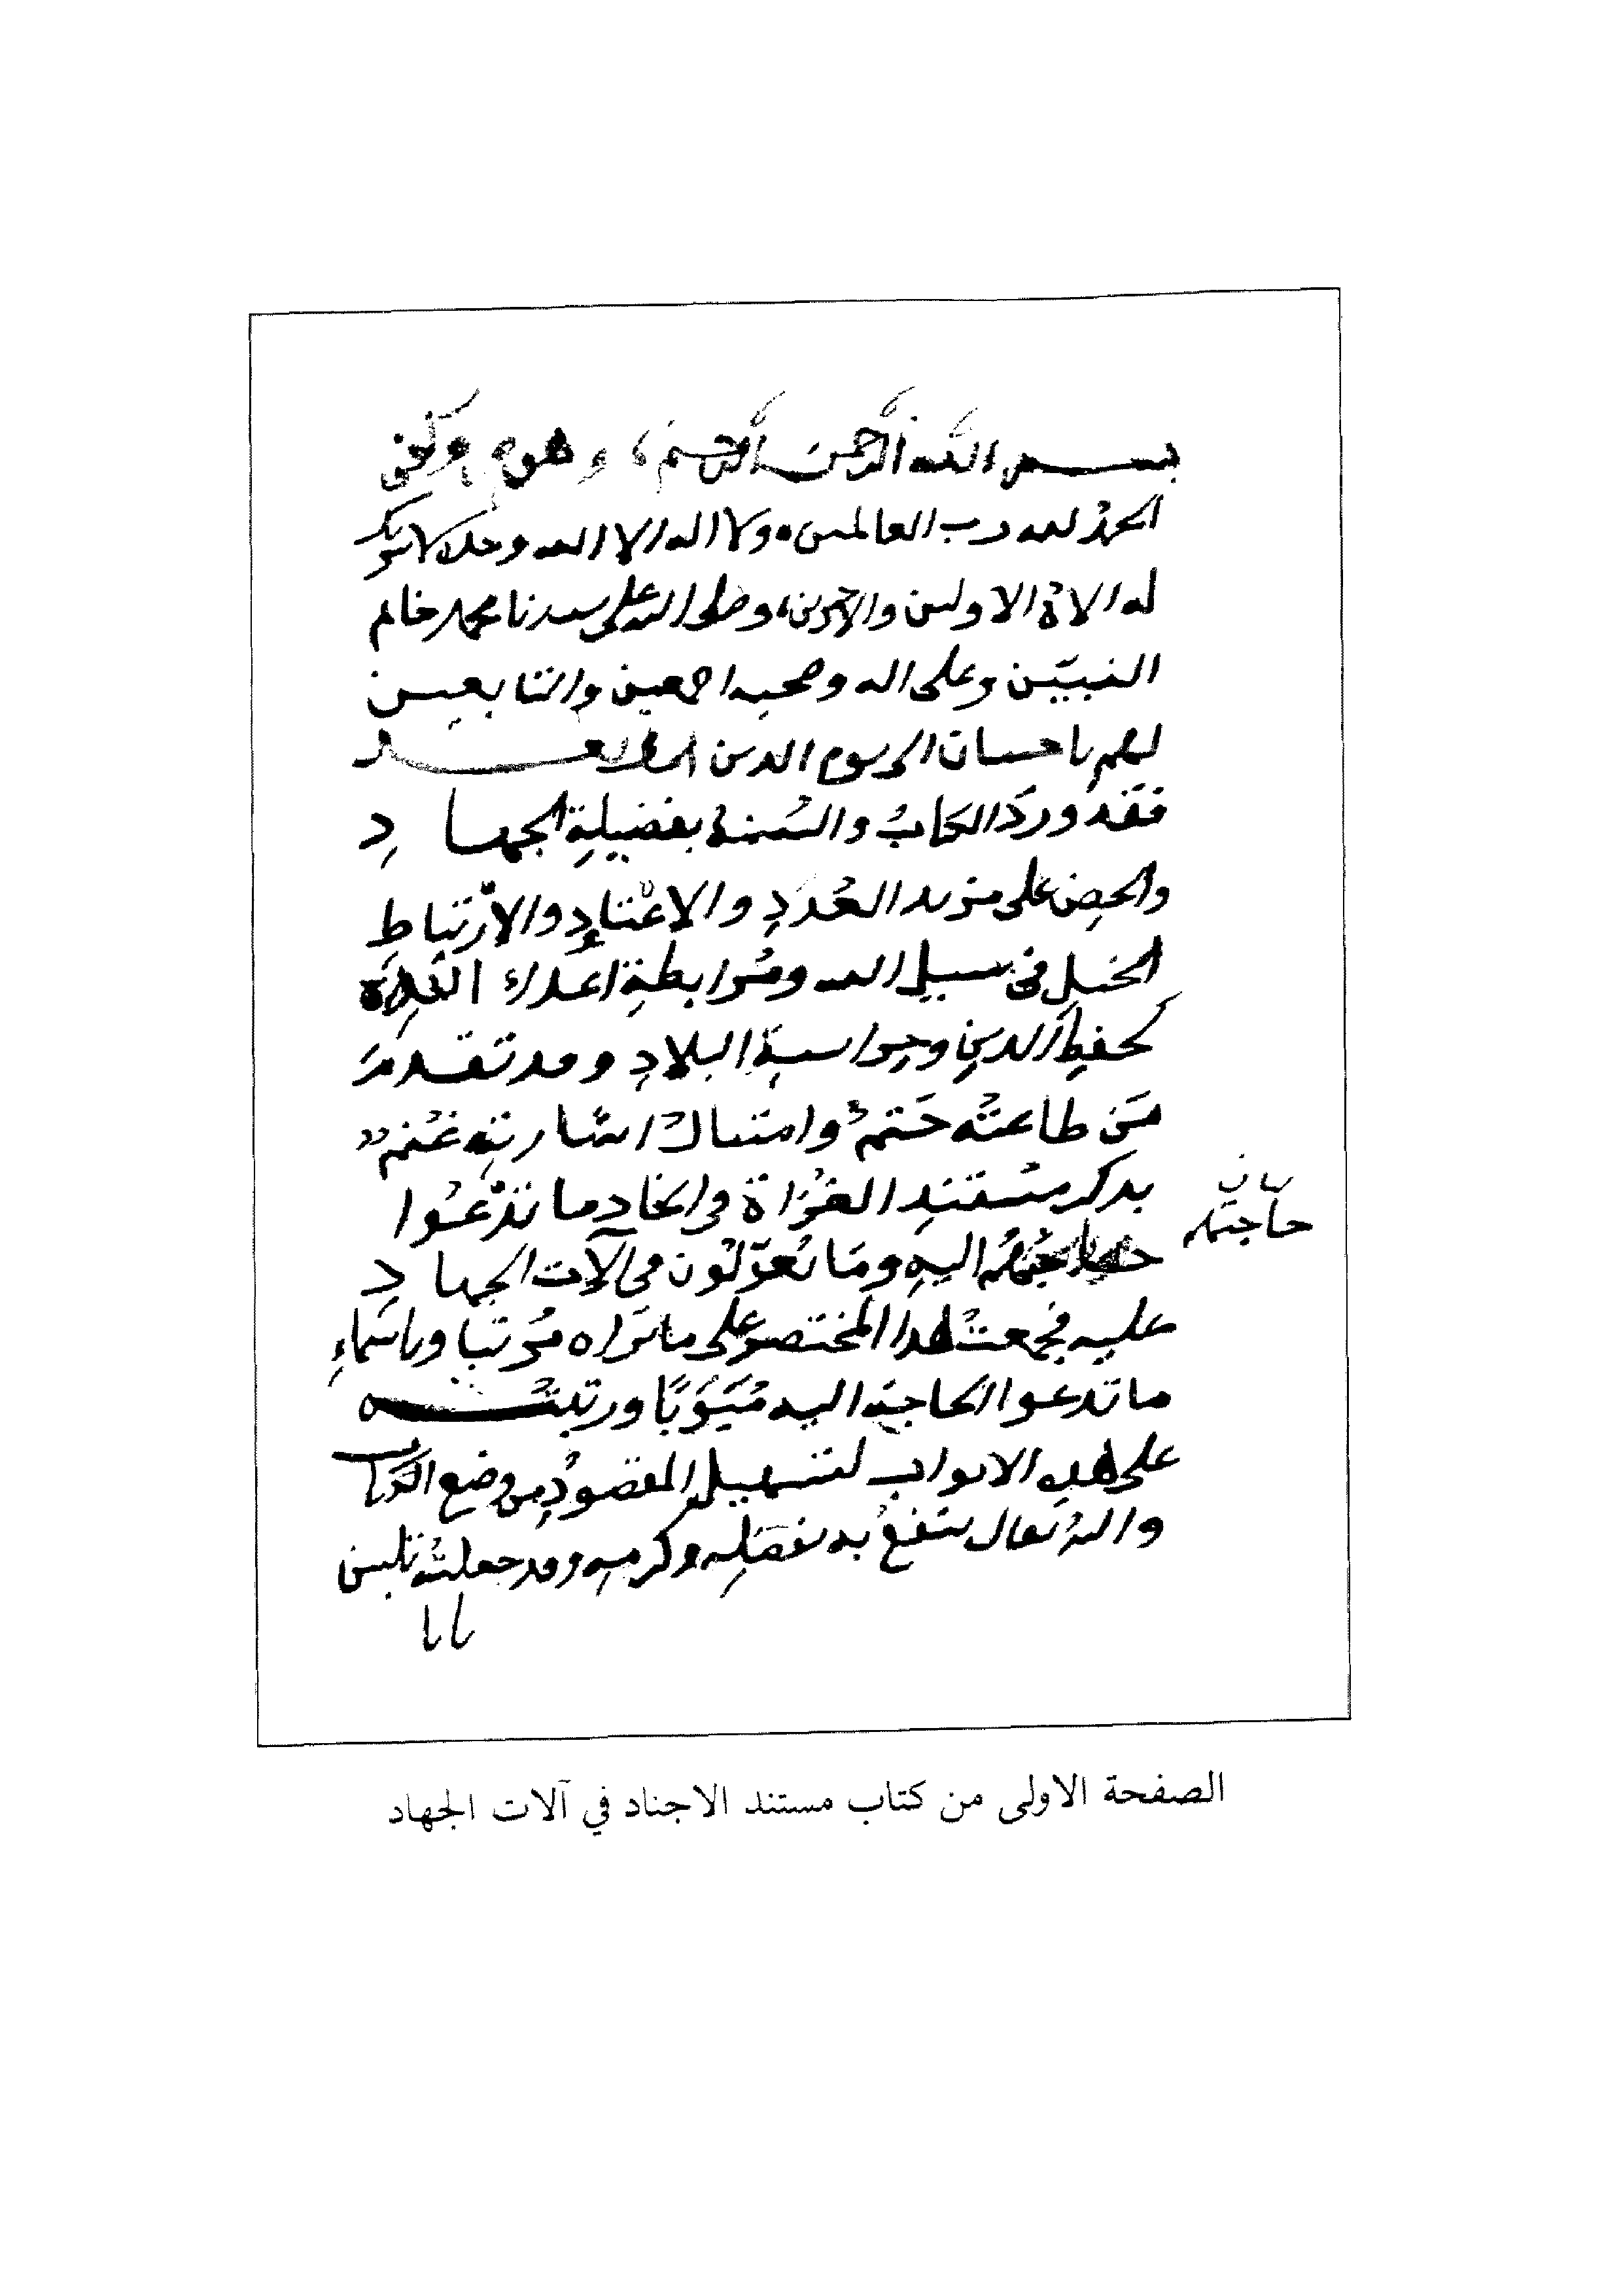 بسم الله الرحمن الرحيم، وهو
الحمد لله رب العالمين ولا اله الا الله وحده لا شريك
له الاه الاولين والاخرين، وصلى الله على سيدنا محمد خاتم
النبيّين وعلى اله وصحبه اجمعين والتابعين
لهم باحسان الى يوم الدين اما بعد
فقد وردَ الكتابُ والسُنة بفضيلةِ الجهادِ
والحضِ على مزيد العُدَدِ والاعْتادِ والارْتباطِ
الخيلِ في سبيل الله ومُرابطةِ اعداء
لحفظِ الدينِ وحِراسةِ البلادِ وقد تقدمَ
مَن طاعتُه حَتمٌ وامتثالُ اشارتِه غُنمٌ
بذكر مُستندِ الغُزاة في اتخاد ما تدْعُوا
اليهِ ومَا يُعوّلُون في آلات الجهادِ
حاجتهم
عليه فجمعتُ هدا المختصر على ما تَراه مُرتبا وباسماءِ
ما تدعوا الحاجة اليه مُبَوَبًا ورتبتُه
على هدهِ الابواب لتسهيل المقصودِ من وضع الكتاب
واللهُ تعالى ينفعُ به بفضلِه وكرمِه وقد جعلتُه ثلثين
بابا
الصفحة الاولى من كتاب مستند الاجناد في آلات الجهاد